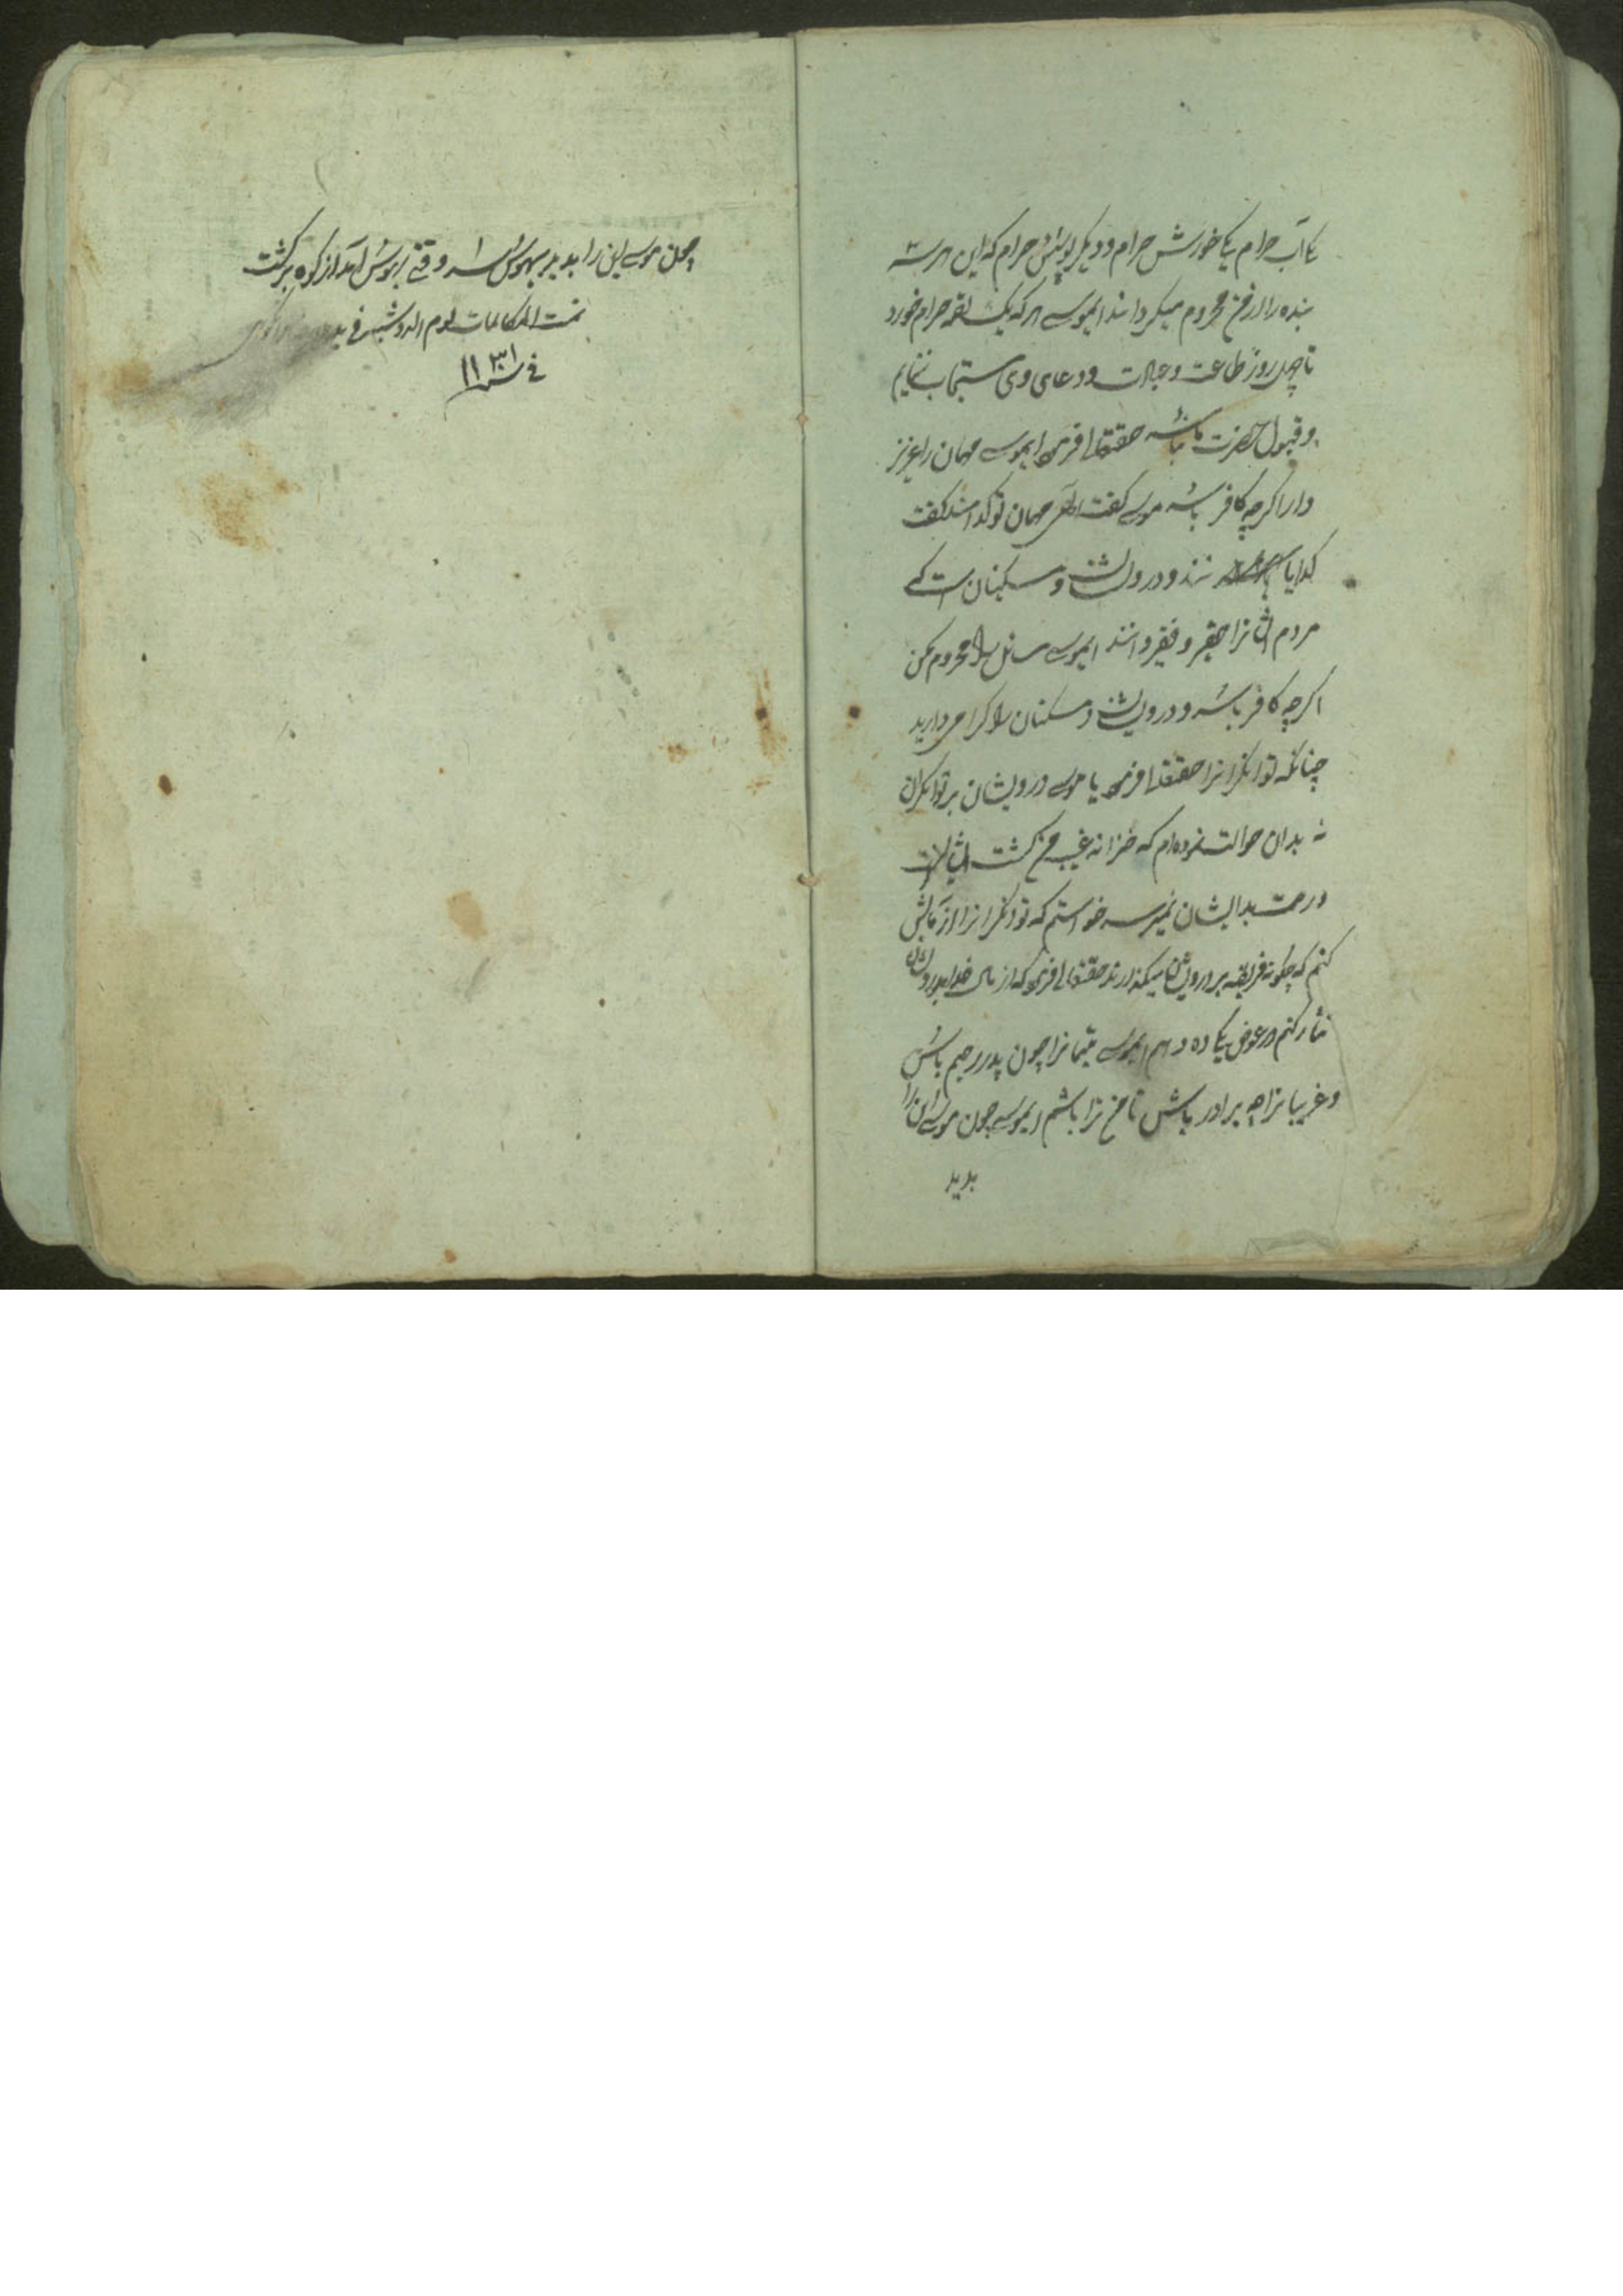 یکی آب حرام یکی خورش حرام و دیگر پوشش حرام که این هر سه
بنده را از من محروم میگرداند ایموسی هر که یک لقمه حرام خورد
تا چهل روز طاعت و عبادت و دعای وی مستجاب ننمایم
و قبول حضرت ما نباشد حقتعالی فرمود ایموسی مهمان را عزیز
دار اگرچه کافر باشد موسی گفت الهی مهمان تو کدامند گفت
گدایانند و درویشان و مسکینان است که
مردم ایشانرا حقیر و فقیر دانند ایموسی سائل را محروم مکن
اگرچه کافر باشد و درویشان و مسکنان را گرامی دارید
چنانکه توانگرانرا حقتعالی فرمود یا موسی درویشان بر توانگران
نه بدان حوالت نموده‌ام که خزانه غیب من گشت
و رحمت بدایشان نمیرسد خواستم که توانگرانرا آزمایش
کنم که چگونه فریضه بر درویشان میگذارند حقتعالی فرمود که از مال خدا بدرویشان
نثار کنم در عوض یکی ده دهم ایموسی یتیمانرا چون پدر رحیم باش
و غریبانرا چه برادر باش تا من ترا باشم ایموسی چون موسی این را
بدید
چون موسی این را بدید بیهوش شد وقتی بهوش آمد از کوه برگشت
تمت المکالمات یوم الدوشنبه فی
فی سنه ۱۱۳۱